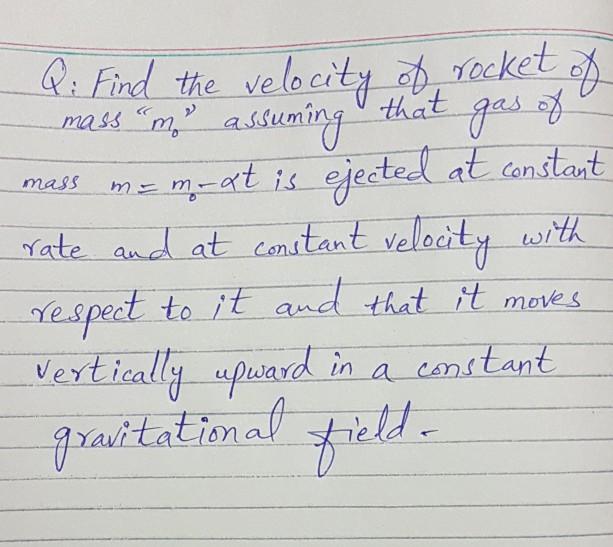 Q: Find the velocity of rocket of
mass "m₀" assuming that gas of
mass m = m₀-αt is ejected at constant
rate and at constant velocity with
respect to it and that it moves
vertically upward in a constant
gravitational field.